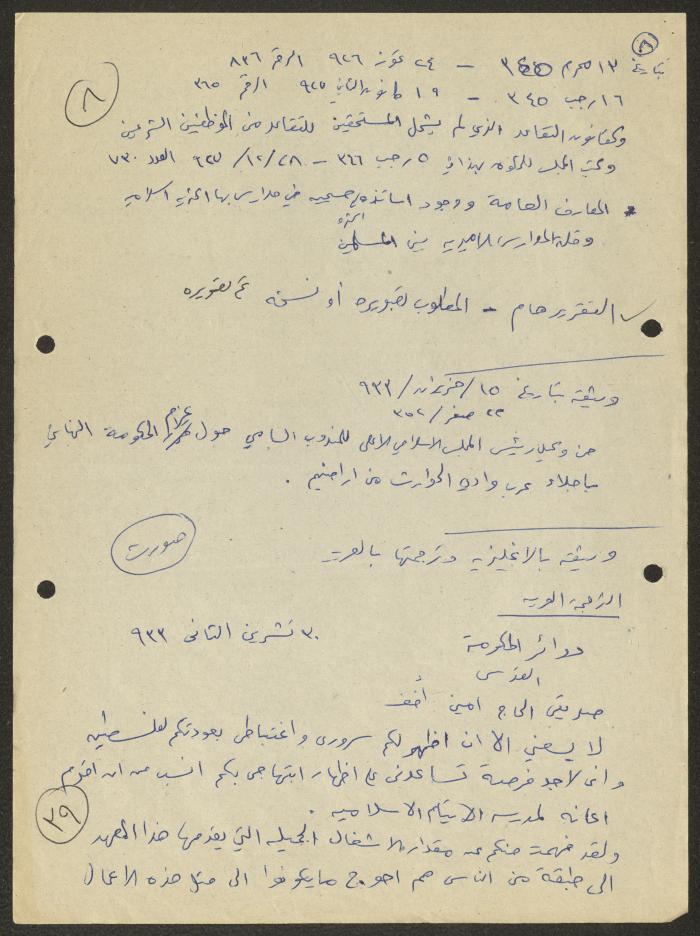 ٨
بتاريخ ١٣ محرم ٣٤٥ – ٢٤ تموز ٩٢٦ الرقم ٨٣٦
٨
١٦ رجب ٣٤٥ – ١٩ كانون الثاني ٩٢٧ الرقم ٣٦٥
وكقانون التقاعد الذي لم يشمل المستحقين للتقاعد من الموظفين الشرعيين
وكتب المجلس للحكومة بهذا في ٥ رجب ٣٤٦ – ٢٨/١٢/٩٢٧ العدد ٧٣٠
* المعارف العامة ووجود اساتذة مسيحيه في مدارس بها اكثريه اسلاميه
وقلة المدارس الاميريه بين المسلمين
✓ التقرير هام – المطلوب تصويره أو نسخه تم تصويره
وثيقه بتاريخ ١٥/حزيران/٩٣٣
٢٣ صفر/٣٥٢
من وكيل رئيس المجلس الاسلامي الاعلى للمندوب السامي حول عزم الحكومة النهائي
باجلاء عرب وادي الحوارث من اراضيهم .
وثيقه بالانجليزيه وترجمتها بالعربيه
صورت
الترجمة العربيه
٣٠ تشرين الثاني ٩٣٣
دوائر الحكومة
القدس
صديقي الحاج امين أفندي
لا يسعني الا ان اظهر لكم سروري واغتباطي بعودتكم لفلسطين
واني لاجد فرصة تساعدني على اظهار ابتهاجي بكم انسب من ان اقدم
اعانه لمدرسه الايتام الاسلاميه .
٢٩
ولقد فهمت منكم عن مقدار الاشغال الجميله التي يقدمها هذا المعهد
الى طبقة من الناس هم احوج ما يكونوا الى مثل هذه الاعمال